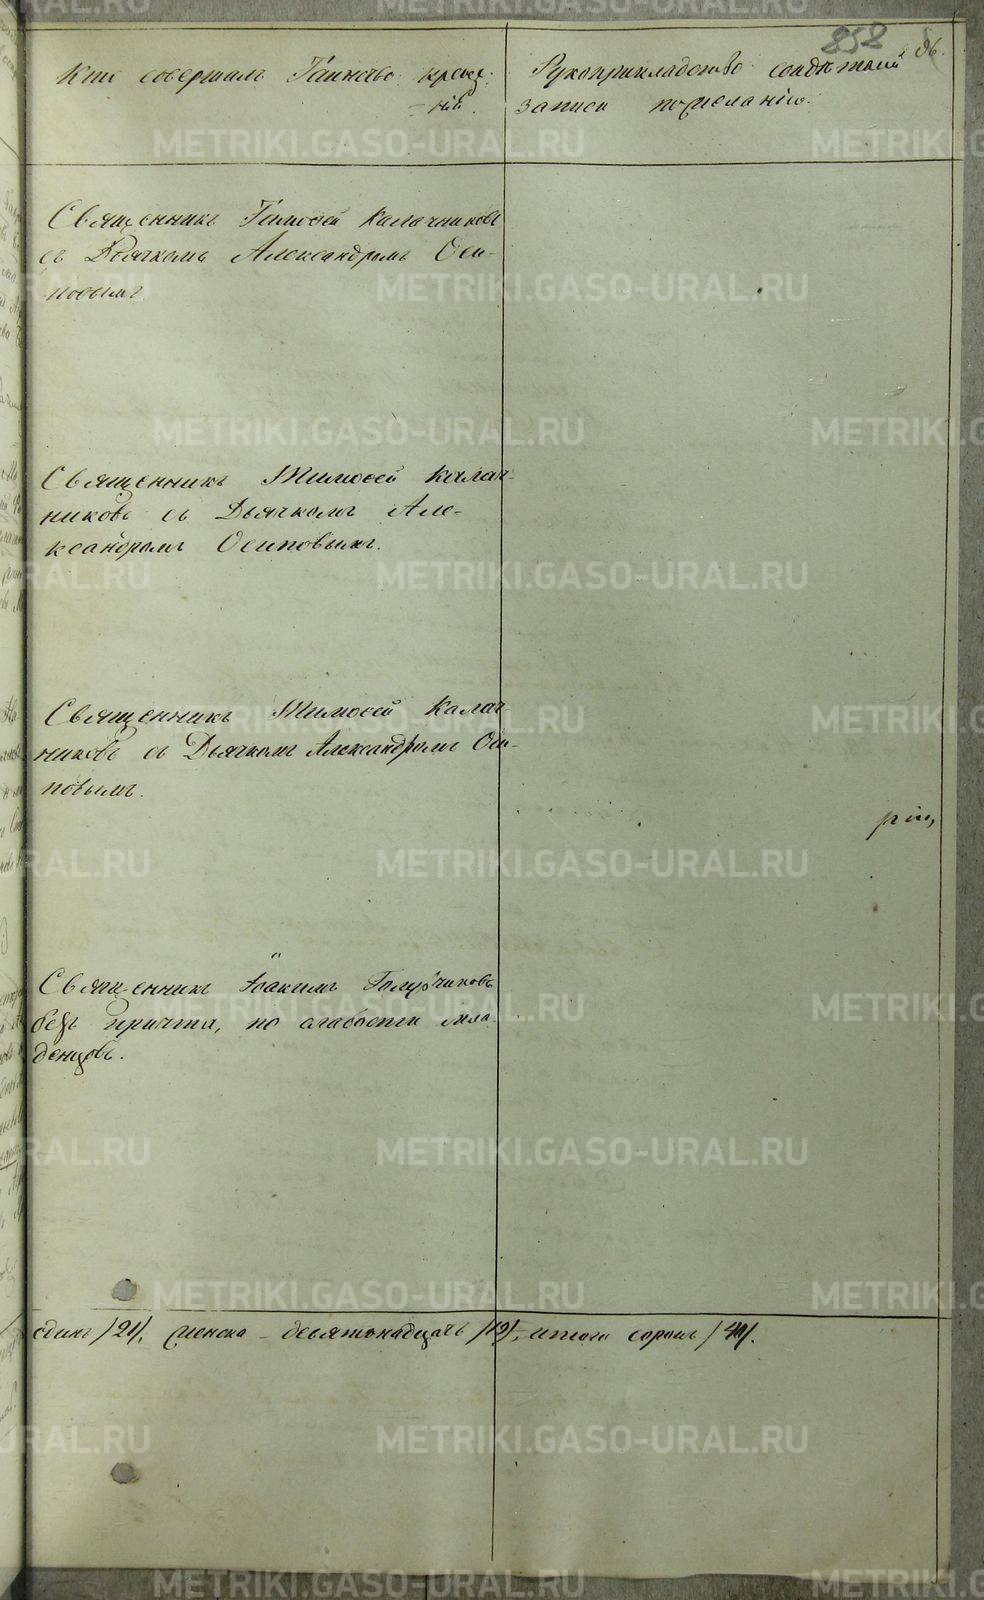 858
Кто совершалъ Таинство креще-
нія.
Рукоприкладство свидѣтелей
записи по желанію.
Священникъ Тимоѳей Калачниковъ
съ Дьячкомъ Александромъ Оси-
повымъ.
Священникъ Тимоѳей Калач-
никовъ съ Дьячкомъ Але-
ксандромъ Осиповымъ.
Священникъ Тимоѳей Калач-
никовъ съ Дьячкомъ Александромъ Оси-
повымъ.
Священникъ Іоакимъ Голубчиковъ
безъ причта, по слабости мла-
денцовъ.
единъ /21/, женска – девятнадцать /19/, итого сорокъ /40/.
METRIKI.GASO-URAL.RU